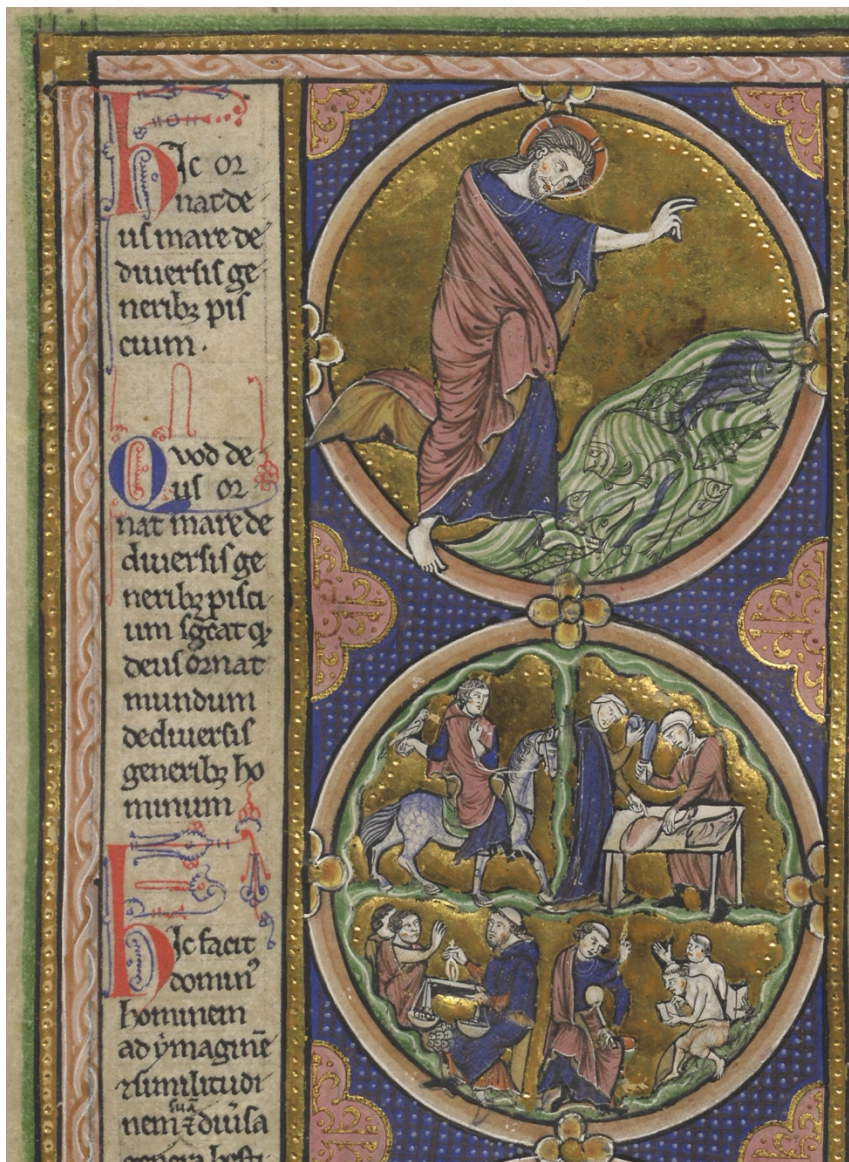 hic or
nat de
us mare de
diversis ge
neribꝫ pis
cium.
Quod de
us or
nat mare de
diversis ge
neribꝫ pisci
um sg̅cat qͥ
deus ornat
mundum
de diversis
neribꝫ ho
minum
hic facit
domin᷒
hominem
ad ymagine̅
⁊ similitudi
nem sua̅ ⁊ diu̅sa
genera besti